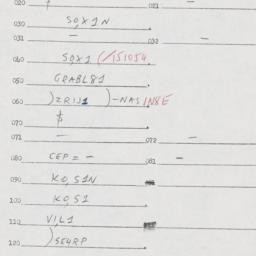 020 021
030 SOX1N
031 — 032 —
040 SOX1 (/151054
050 GRABL81
060 )ZRIJ1 )-NASIN8E
070 $
071 — 072 —
080 CEP = — 081 —
090 KO,S1N
100 KO,S1
110 VIL1
120 )SE4RP